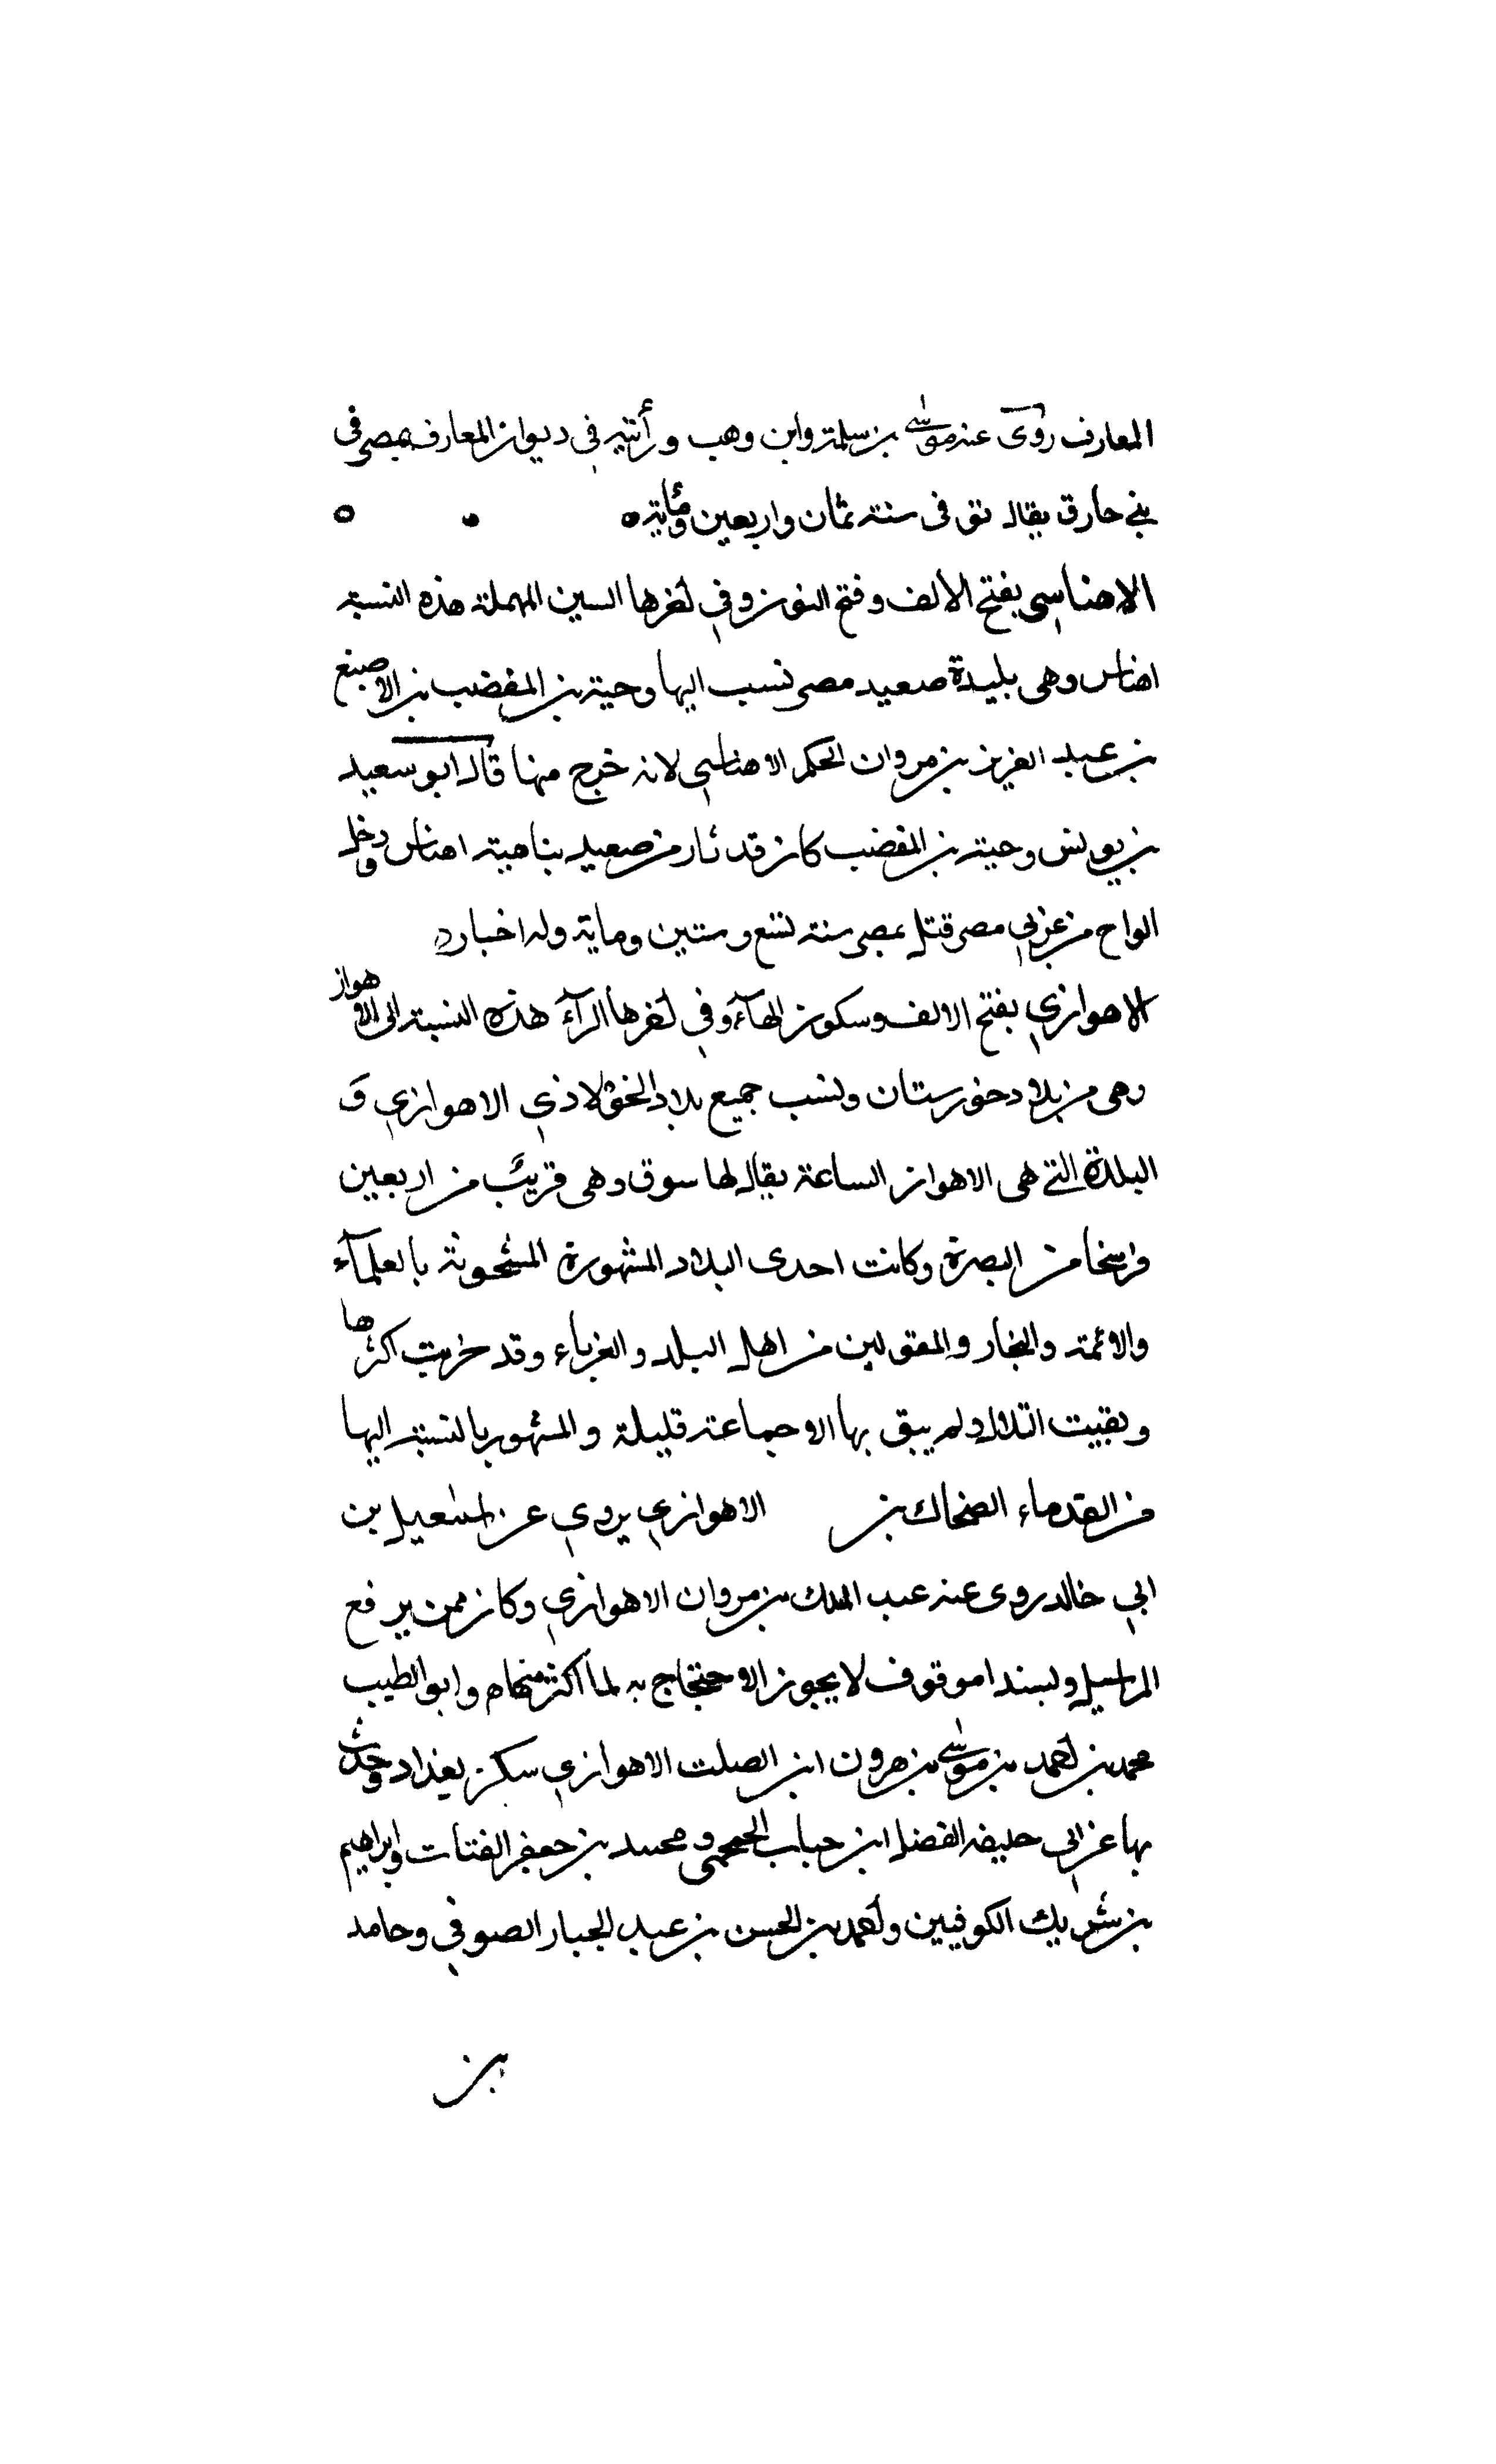 المعارف روى عنه موسى بن سلمة وابن وهب ورأيته في ديوان المعارف بمصر في
بني حارق يقال توفى في سنة ثمان واربعين ومائة
الاهناسي بفتح الالف وفتح النون وفي اخرها السين المهملة هذه النسبة
اهناس وهي بليدة صعيد مصر نسب اليها وحية بن المغضب بن الاصبغ
بن عبد العزيز بن مروان الحكم الاهناسي لانه خرج منها قال ابو سعيد
بن يونس وحية بن المغضب كان قد ثار من صعيد بناحية اهناس ودخل
الواح من غربي مصر قتل بمصر سنة تسع وستين وماية وله اخبار
الاهوازي بفتح الالف وسكون الهاء وفي اخرها الراء هذه النسبة الى الاهواز
وهي من بلاد خوزستان ونسب جميع بلاد الاهوازي و
البلدة التي هي الاهواز الساعة يقال لها سوق وهي قريب من اربعين
فرسخا من البصرة وكانت احدى البلاد المشهورة المشحونة بالعلماء
والائمة والتجار والمتمولين من اهل البلد والغرباء وقد خربت اكثرها
وبقيت التلال ولم يبق بها الا جماعة قليلة والمشهور بالنسبة اليها
من القدماء الضحاك بن الاهوازي يروي عن اسمعيل بن
ابي خالد روى عنه عبد الملك بن مروان الاهوازي وكان ممن يرفع
المراسيل ويسند الموقوف لا يجوز الاحتجاج به لما اكثر منها وابو الطيب
محمد بن احمد بن موسى بن هرون ابن الصلت الاهوازي سكن بغداد وحدث
بها عن ابي خليفة الفضل ابن حباب الجمحي ومحمد بن جعفر القتات وابراهيم
بن شريك الكوفيين واحمد بن الحسن بن عبد الجبار الصوفي وحامد
بن